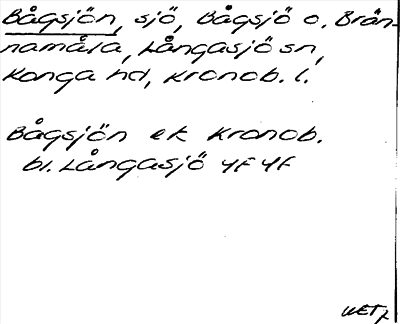 Bågsjön, sjö, Bågsjö o. Brän-
namåla, Långasjö sn,
Konga hd, Kronob. l.
Bågsjön ek Kronob.
bl. Långasjö 4F4f